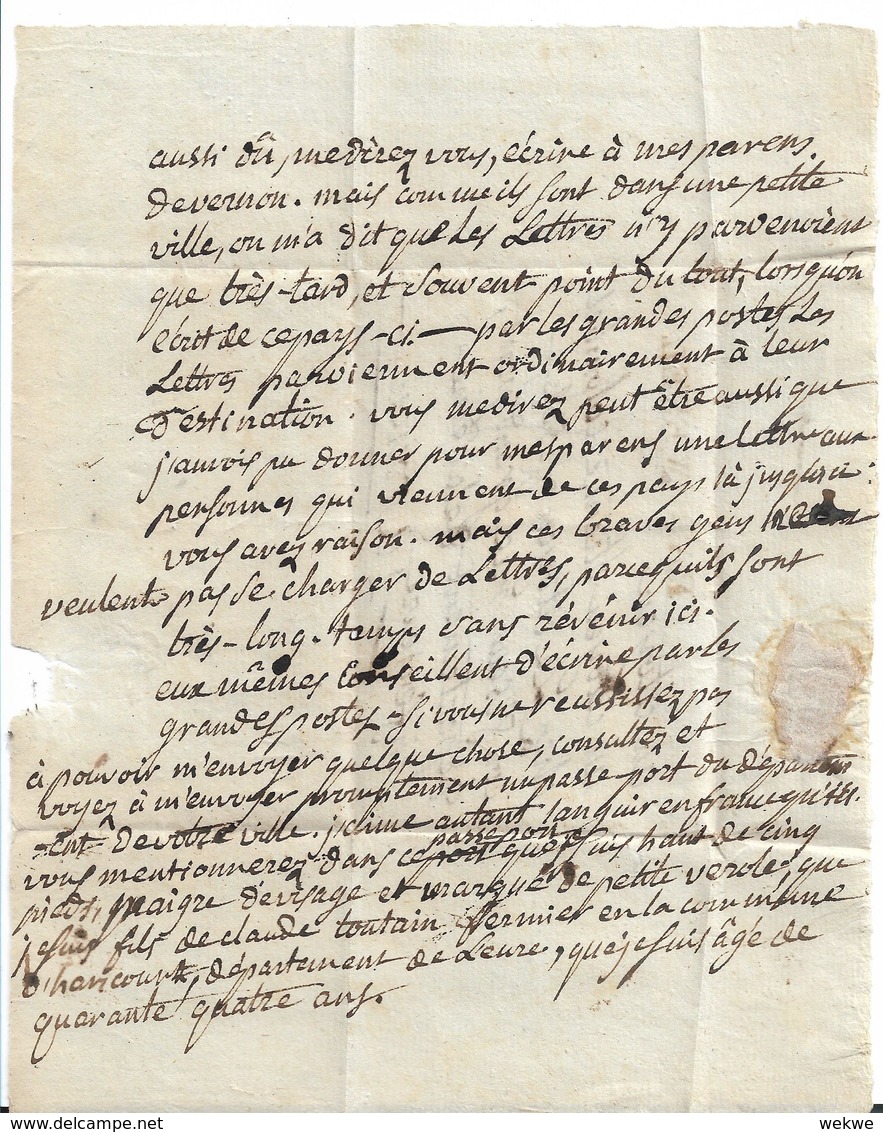 aussi dû, me direz vous, écrire à mes parens
de vernon. mais comme ils sont dans une petite
ville, on m'a dit que les Lettres n'y parvenoient
que très-tard, et souvent point du tout, lorsqu'on
écrit de ce pays-ci. — par les grandes postes les
Lettres parviennent ordinairement à leur
destination. vous me direz peut être aussi que
j'aurois pu donner pour mes parens une lettre aux
personnes qui viennent de ces pays là jusqu'ici:
vous avez raison. mais ces braves gens ne
veulent pas se charger de Lettres, parcequ'ils sont
très-long-temps sans révénir ici.
eux mêmes conseillent d'écrire par les
grandes postes - si vous ne reussissez pas
à pouvoir m'envoyer quelque chose, consultez et
voyez à m'envoyer promptement un passe port du départem
-ent de votre ville. j'aime autant languir en france qu'ici.
vous mentionnerez dans ce passeport que je suis haut de cinq
pieds, maigre dévisage et marqué de petite verole, que
je suis fils de claude toutain fermier en la commune
d'harcourt, département de Leure, que je suis âgé de
quarante quatre ans.
wekwe